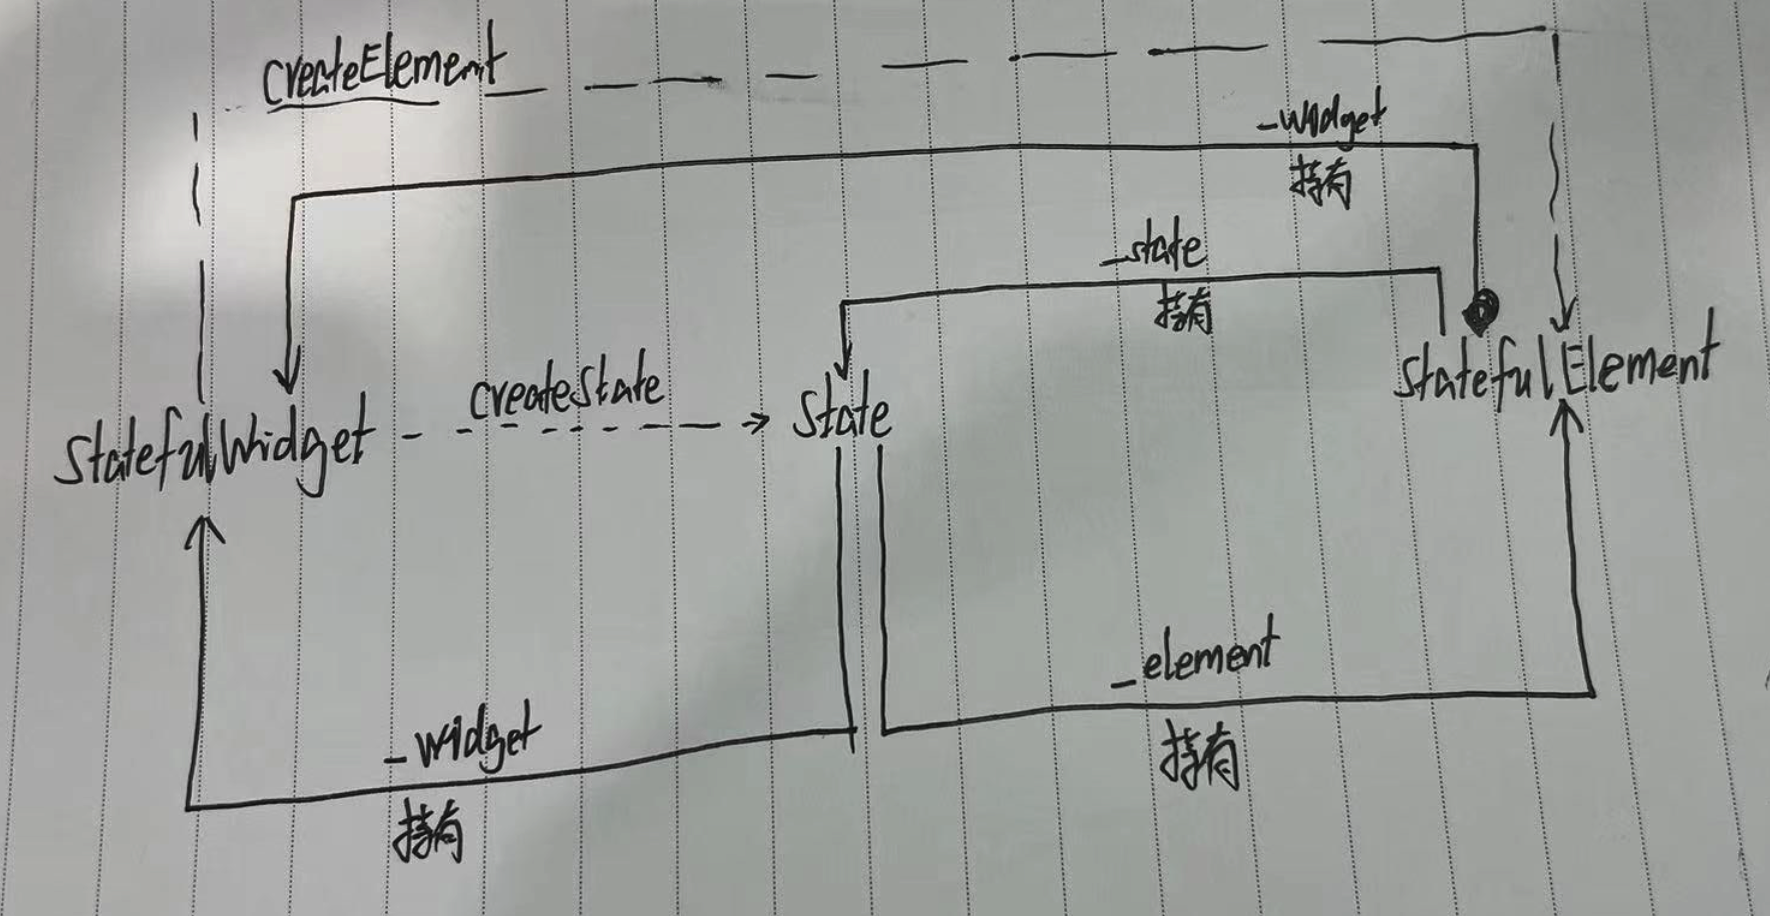 createElement
_widget
持有
_state
持有
StatefulWidget
createState
State
StatefulElement
_element
持有
_widget
持有